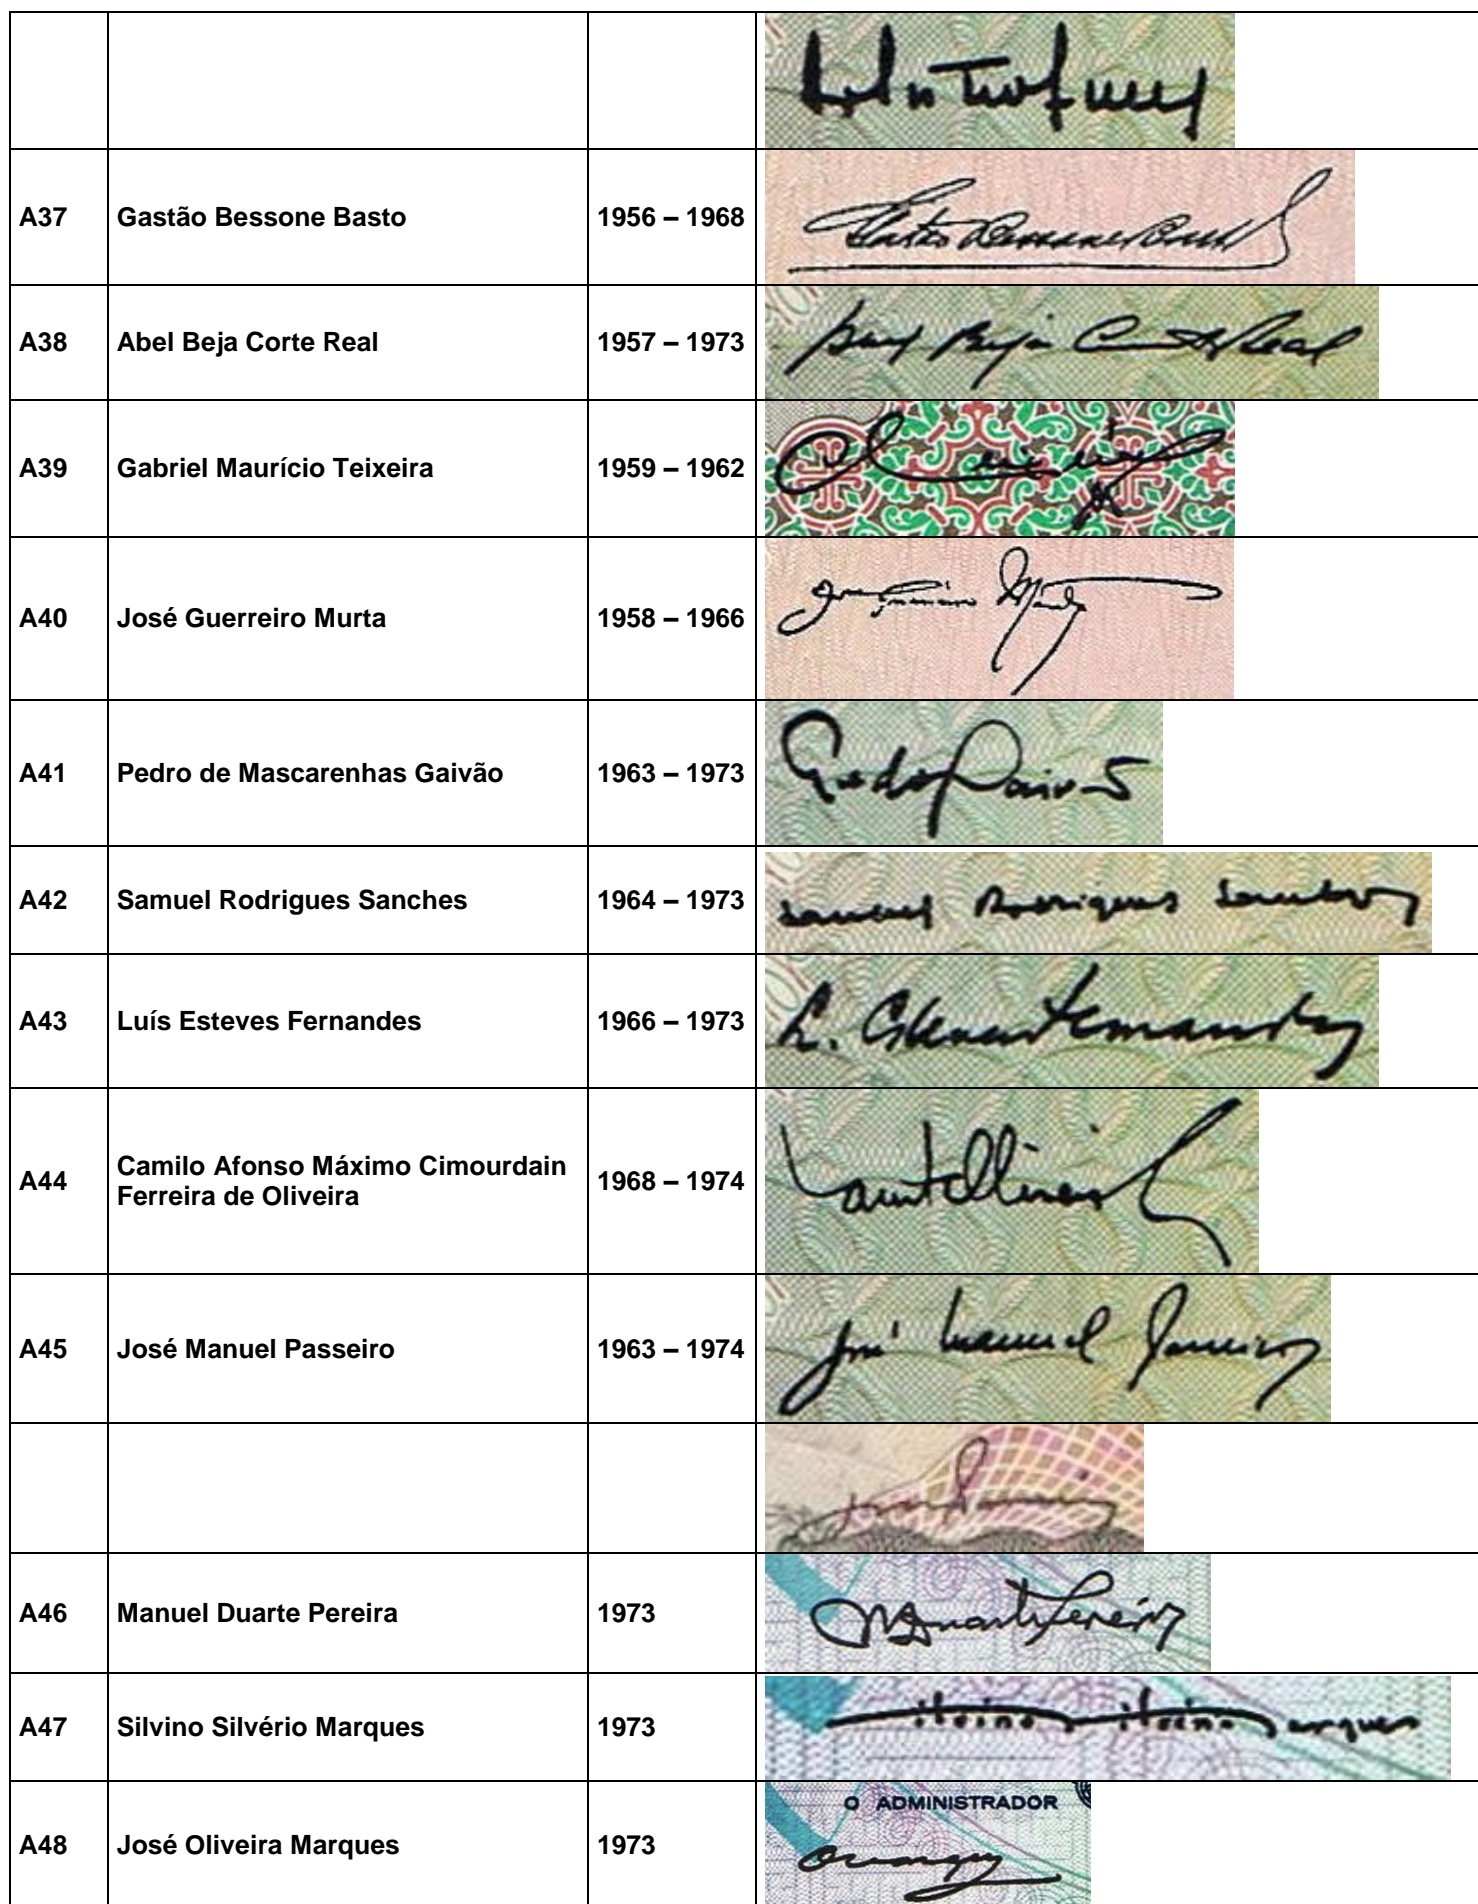 A37 Gastão Bessone Basto 1956 – 1968
A38 Abel Beja Corte Real 1957 – 1973
A39 Gabriel Maurício Teixeira 1959 – 1962
A40 José Guerreiro Murta 1958 – 1966
A41 Pedro de Mascarenhas Gaivão 1963 – 1973
A42 Samuel Rodrigues Sanches 1964 – 1973
Samuel Rodrigues Sanches
A43 Luís Esteves Fernandes 1966 – 1973
L. Esteves Fernandes
A44 Camilo Afonso Máximo Cimourdain
Ferreira de Oliveira 1968 – 1974
A45 José Manuel Passeiro 1963 – 1974
José Manuel Passeiro
A46 Manuel Duarte Pereira 1973
A47 Silvino Silvério Marques 1973
O ADMINISTRADOR
A48 José Oliveira Marques 1973